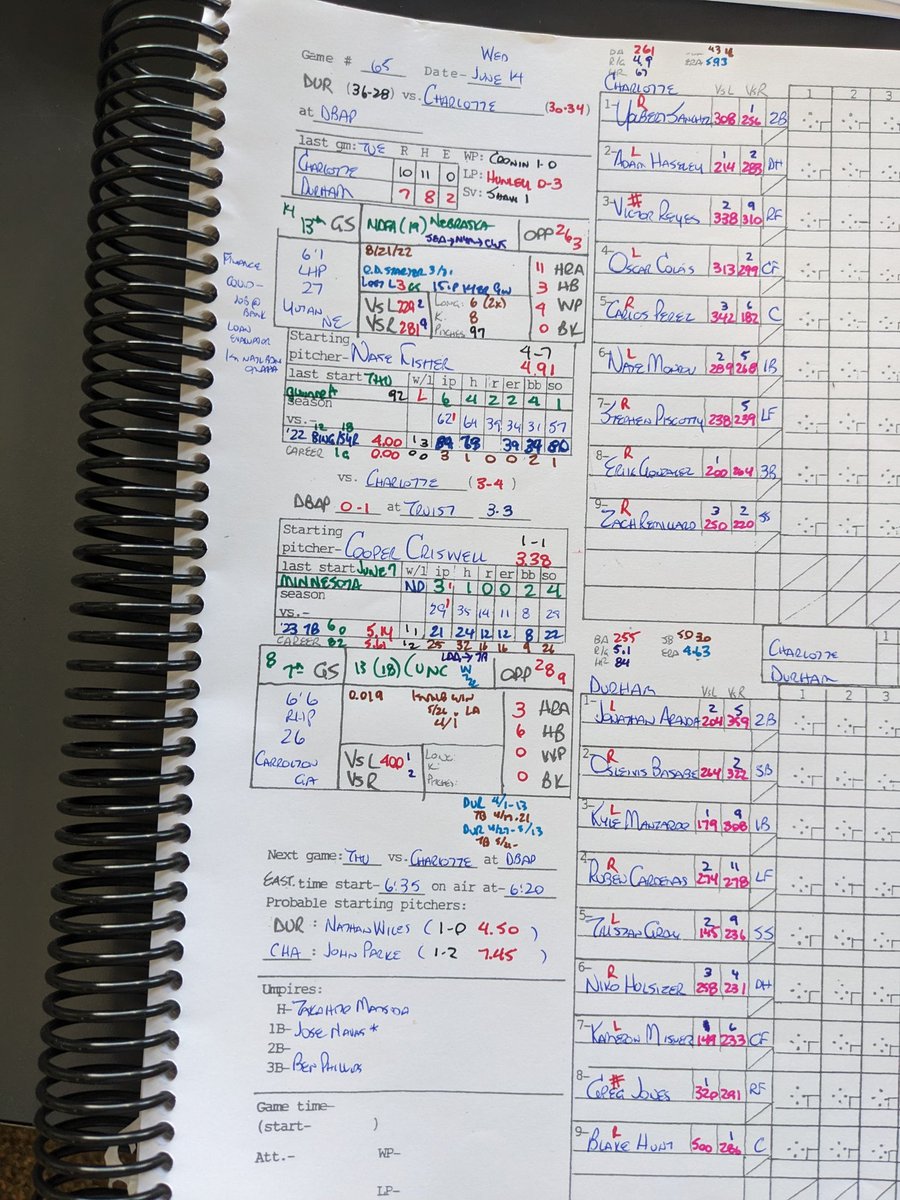 WED
Game # 65 Date- JUNE 14
DUR (36-28) vs. CHARLOTTE (30-34)
at DBAP
last gm: TUE R H E WP: CRONIN 1-0
CHARLOTTE 10 11 0 LP: HUNLEY 0-3
DURHAM 7 8 2 SV: SHAW 1
14 13th GS NDFA (19) NEBRASKA OPP 263
6'1 8/21/22 11 HRA
LHP 3 HB
27 VS L 229 2 LONG: 6 (2x) 4 WP
YUTAN NE VS R 281 9 K: 8 0 BK
PITCHES: 97
FINANCE
COVID-
JOB @
BANK
LOAN
EVALUATOR
1st NATL BANK
OMAHA
Starting
pitcher- NATE FISHER 4-7 4.91
last start THU w/l ip h r er bb so
GWINNETT 92 L 6 4 2 2 4 1
season 62¹ 64 35 34 31 57
vs.-
'22 BING/SYR 4.00 1 3 89 78 39 39 80
CAREER 1G 0.00 0 0 3 1 0 0 2 1
vs. CHARLOTTE (3-4)
DBAP 0-1 at TRUIST 3-3
Starting
pitcher- COOPER CRISWELL 1-1 3.38
last start JUNE 7 w/l ip h r er bb so
MINNESOTA ND 3¹ 1 0 0 2 4
season 29¹ 35 14 11 8 29
vs.-
'23 TB 6 0 5.14 1 1 21 24 12 12 8 22
CAREER 1 2 25 32 16 16 9 26
8 7th GS 13 (18) (UNC OPP 289
6'6 3 HRA
RHP 6 HB
26 VS L 400 1 LONG: 0 WP
CARROLLTON GA VS R 2 K: 0 BK
PITCHES:
DUR 4/1-13
TB 4/17-21
DUR 4/27-5/13
TB 5/21-
Next game: THU vs. CHARLOTTE at DBAP
EAST. time start- 6:35 on air at- 6:20
Probable starting pitchers:
DUR : NATHAN WILES (1-0 4.50)
CHA : JOHN PARKE (1-2 7.45)
Umpires:
H- TAKAHITO MATSUDA
1B- JOSE NAVAS *
2B-
3B- BEN PHILLIPS
Game time-
(start- )
Att.- WP-
LP-
BA 261
R/G 4.9 ERA 5.93
HR 67
CHARLOTTE VS L VS R 1 2 3
1- R YOLBERT SANCHEZ 308 256 1 2B
2- L ADAM HASELEY 214 1 283 2 DH
3- # VICTOR REYES 338 2 310 9 RF
4- L OSCAR COLÁS 313 299 2 CF
5- R CARLOS PEREZ 342 3 182 6 C
6- L NATE MONDOU 289 2 268 5 1B
7- R STEPHEN PISCOTTY 238 239 5 LF
8- R ERIK GONZALEZ 200 1 264 3B
9- R ZACH REMILLARD 250 3 220 2 SS
BA 255 SB
R/G 5.1 ERA 4.63
HR 84
1
CHARLOTTE
DURHAM
DURHAM VS L VS R
1- L JONATHAN ARANDA 204 2 359 5 2B
2- R OSLEIVIS BASABE 264 322 2 3B
3- L KYLE MANZARDO 179 1 308 9 1B
4- R RUBEN CARDENAS 274 2 278 11 LF
5- L TRISTAN GRAY 145 2 236 9 SS
6- R NIKO HULSIZER 258 3 231 4 DH
7- L KAMERON MISNER 149 233 6 CF
8- # GREG JONES 320 1 291 RF
9- R BLAKE HUNT 500 286 1 C